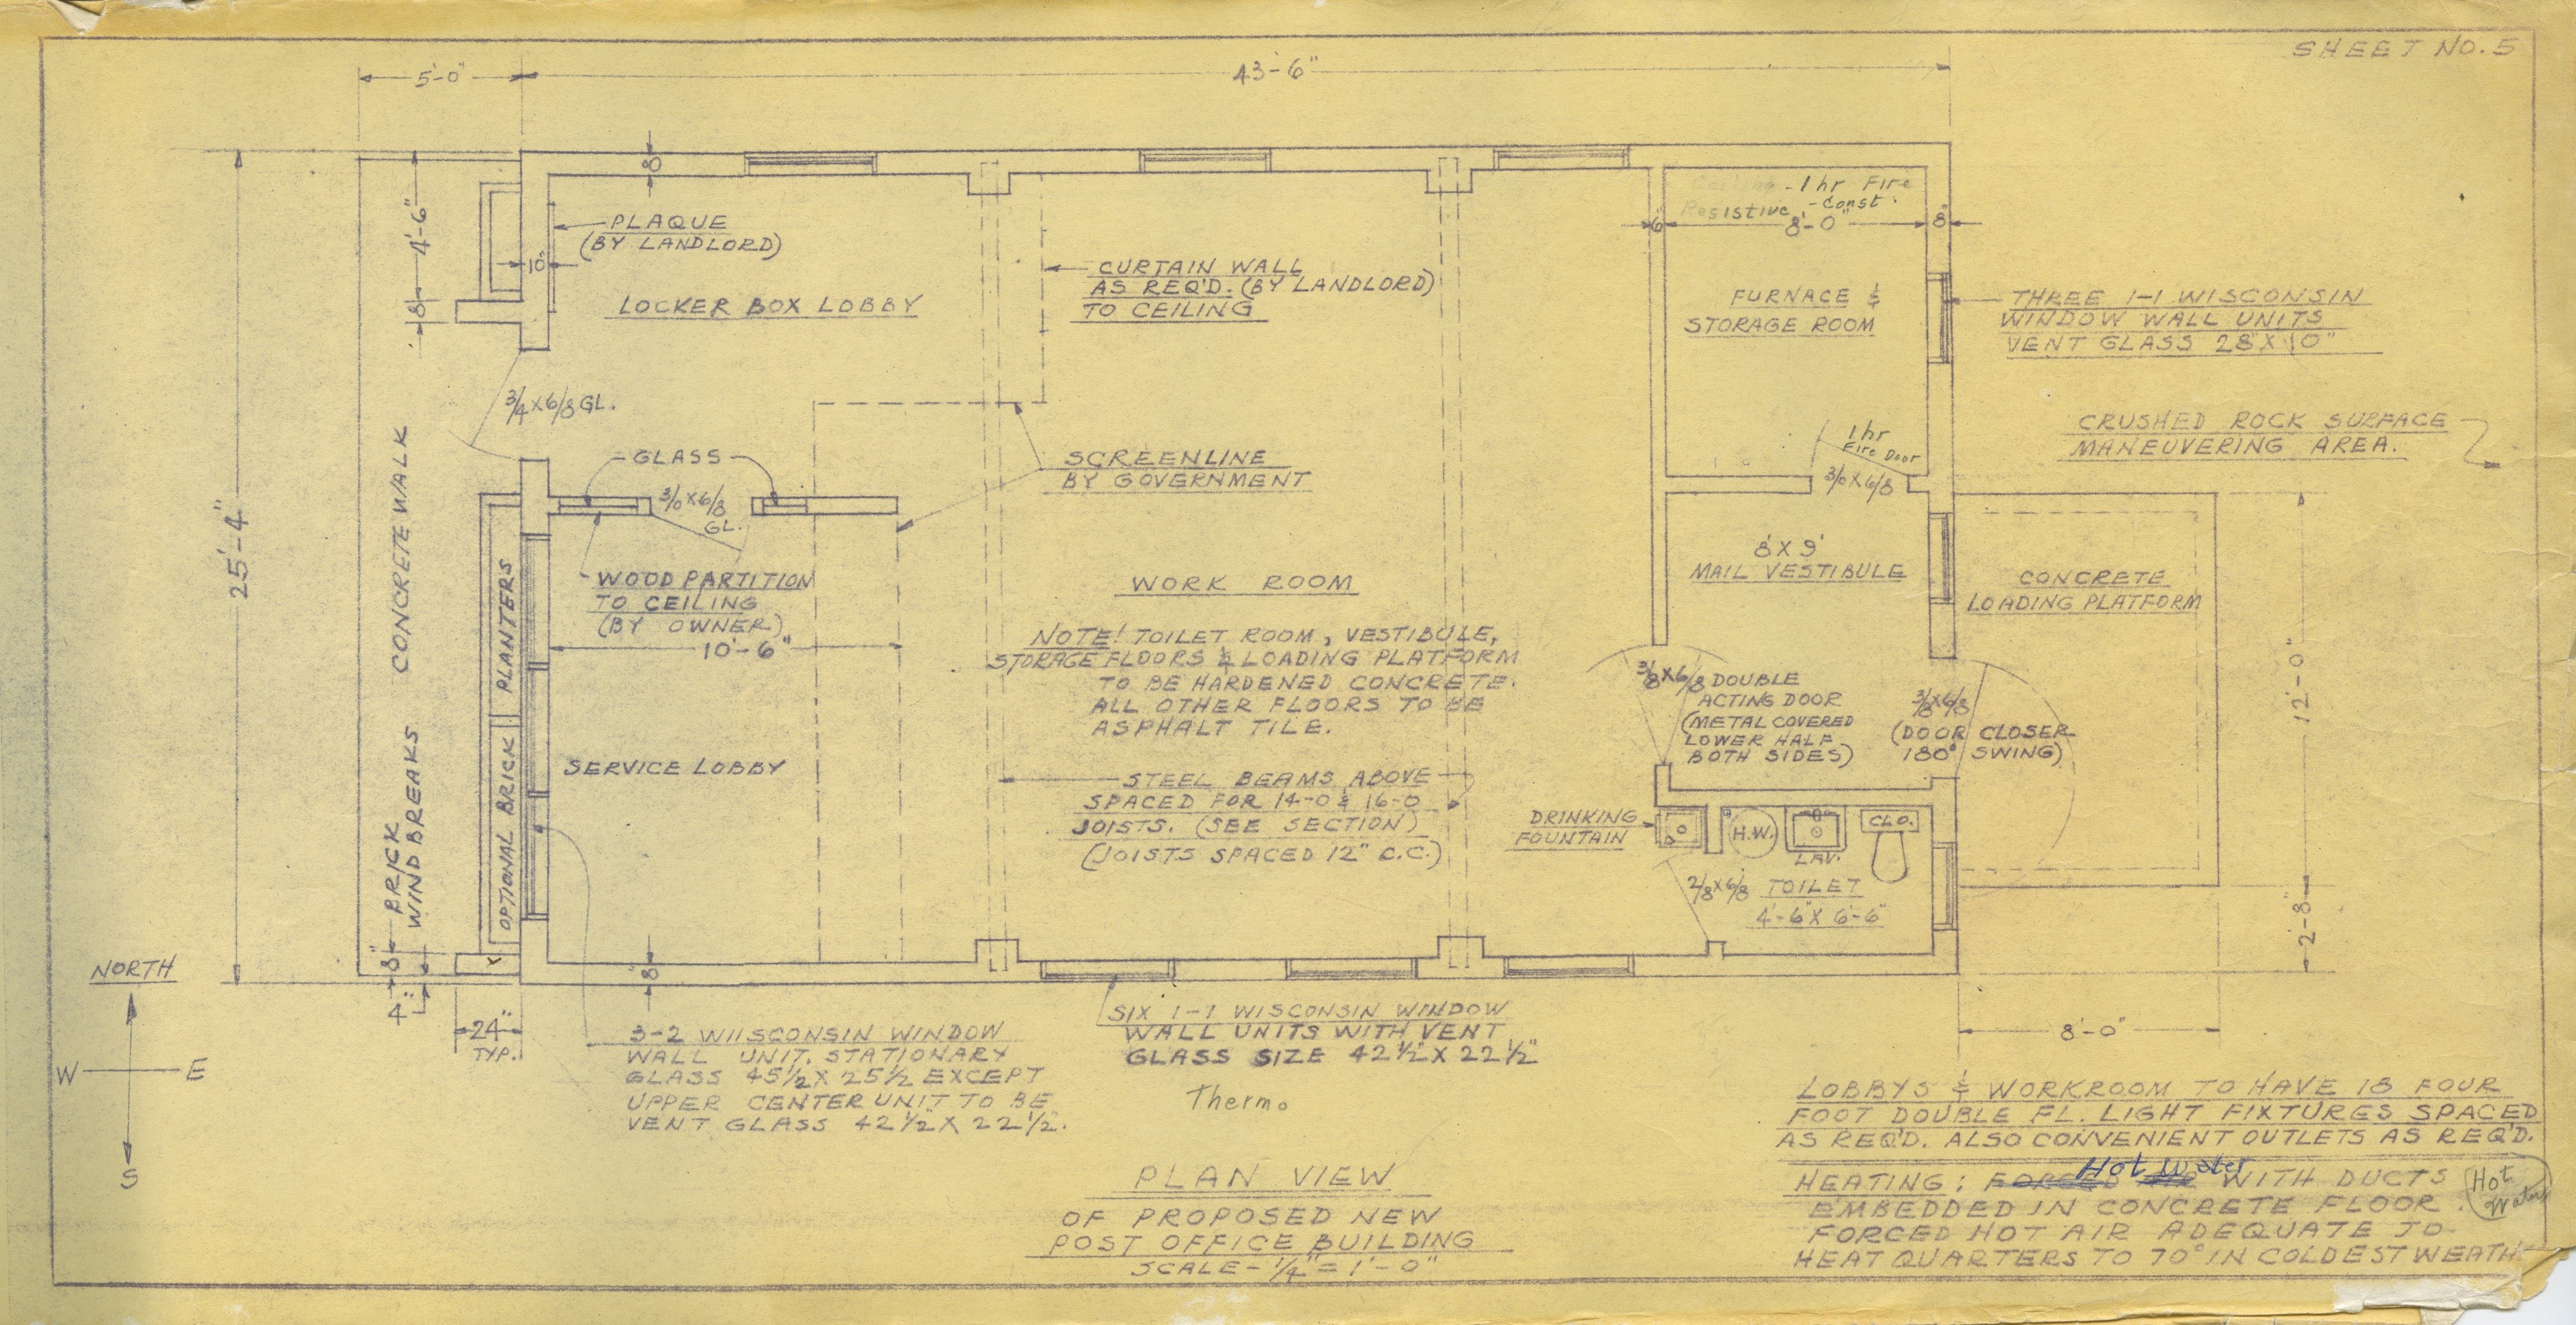 SHEET NO. 5
5'-0"
43'-6"
8"
PLAQUE
(BY LANDLORD)
4'-6"
10"
8"
LOCKER BOX LOBBY
CURTAIN WALL
AS REQ'D. (BY LANDLORD)
TO CEILING
- 1 hr Fire
Resistive - Const.
6"
8'-0"
8"
FURNACE &
STORAGE ROOM
THREE 1-1 WISCONSIN
WINDOW WALL UNITS
VENT GLASS 28" X 10"
3/4 X 6/8 GL.
CRUSHED ROCK SURFACE
MANEUVERING AREA.
1 hr
Fire Door
3/0 X 6/8
GLASS
3/0 X 6/8
GL.
SCREENLINE
BY GOVERNMENT
25'-4"
CONCRETE WALK
PLANTERS
WOOD PARTITION
TO CEILING
(BY OWNER)
10'-6"
WORK ROOM
8' X 9'
MAIL VESTIBULE
CONCRETE
LOADING PLATFORM
NOTE! TOILET ROOM, VESTIBULE,
STORAGE FLOORS & LOADING PLATFORM
TO BE HARDENED CONCRETE.
ALL OTHER FLOORS TO BE
ASPHALT TILE.
3/8 X 6/8 DOUBLE
ACTING DOOR
(METAL COVERED
LOWER HALF
BOTH SIDES)
3/8 X 6/8
(DOOR CLOSER
180° SWING)
12'-0"
SERVICE LOBBY
STEEL BEAMS ABOVE
SPACED FOR 14-0 & 16-0
JOISTS. (SEE SECTION)
(JOISTS SPACED 12" O.C.)
BRICK
WIND BREAKS
OPTIONAL BRICK
DRINKING
FOUNTAIN
H.W.
LAV.
CLO.
2/8 X 6/8
TOILET
4'-6" X 6'-6"
2'-8"
8"
4"
8"
24"
TYP.
8'-0"
NORTH
W
E
S
3-2 WIISCONSIN WINDOW
WALL UNIT. STATIONARY
GLASS 45½ X 25½ EXCEPT
UPPER CENTER UNIT TO BE
VENT GLASS 42½" X 22½".
SIX 1-1 WISCONSIN WINDOW
WALL UNITS WITH VENT
GLASS SIZE 42½" X 22½"
Thermo
LOBBYS & WORKROOM TO HAVE 18 FOUR
FOOT DOUBLE FL. LIGHT FIXTURES SPACED
AS REQ'D. ALSO CONVENIENT OUTLETS AS REQ'D.
Hot Water
HEATING: FORCED WITH DUCTS
EMBEDDED IN CONCRETE FLOOR.
FORCED HOT AIR ADEQUATE TO
HEAT QUARTERS TO 70° IN COLDEST WEATH
Hot
Water
PLAN VIEW
OF PROPOSED NEW
POST OFFICE BUILDING
SCALE - ¼" = 1'-0"